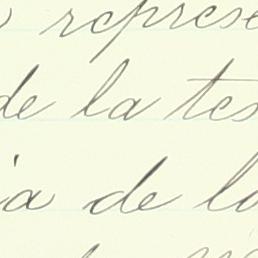 represe
de la tes
ia de lo